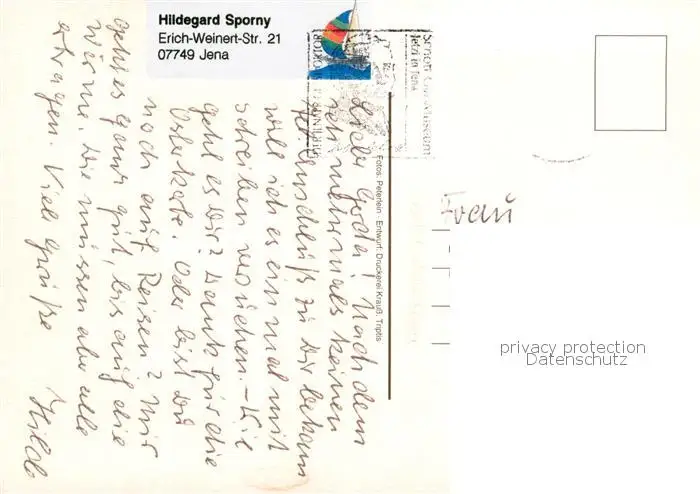 Hildegard Sporny
Erich-Weinert-Str. 21
07749 Jena
Jetzt in Jena
Liebe Gerda! Nachdem
ich mehrmals keinen
Anschluß zu Dir bekam
will ich es einmal mit
schreiben versuchen. – Wie
geht es Dir? Dank für die
Osterkarte. Oder bist Du
noch auf Reisen? Mir
geht es ganz gut, bis auf die
Wärme. Die müssen wir alle
ertragen. Viele Grüße
Hilde
Fotos: Peterlein · Entwurf: Druckerei Krauß, Triptis
Frau
privacy protection
Datenschutz